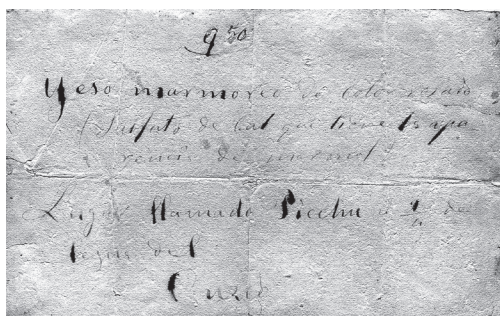 9 50
Yeso marmoreo de color rosado
(Sulfato de Cal que tiene la apa
riencia de marmol)
Lugar llamado Picchu a 1/4 de
legua del
Cuzco